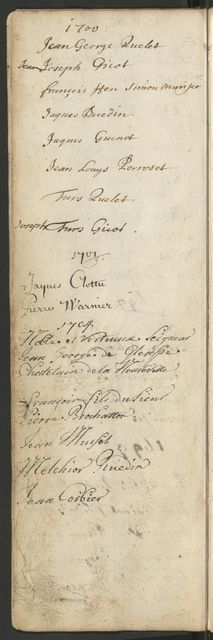 1700
Jean George Quelet
Jean Joseph Gicot
françois Simon
Jaques Buedin
Jaques Guenot
Jean Louys Perroset
Turs Quelet
Joseph Turs Gicot.
1701
Jaques Clottu
Pierre Warnier
1704
Noble et Vertueux Seigneur
Jean George de Gleresse
Chattelain de la Neuveville
François fils du Sieur
Pierre Brochatton
Jean Muset
Melchior Ruedin
Jean Coibier